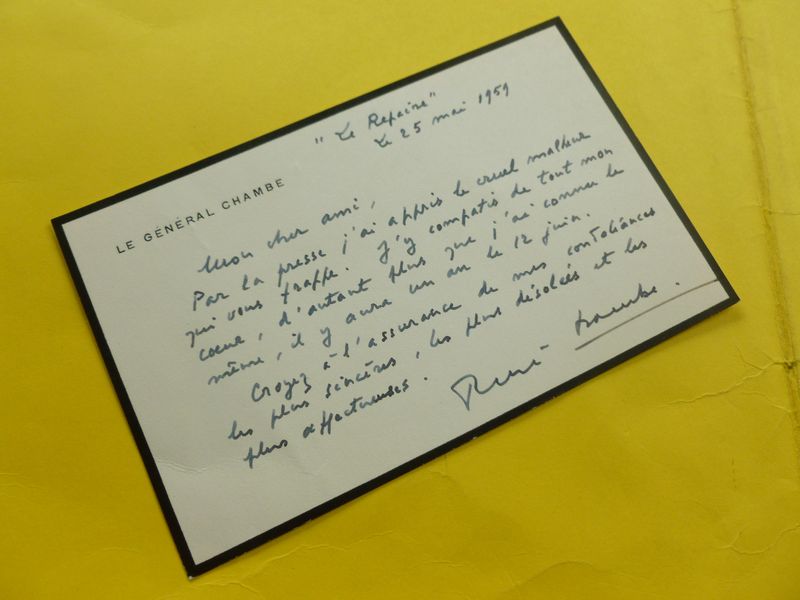 "Le Repaire"
Le 25 mai 1959
LE GÉNÉRAL CHAMBE
Mon cher ami,
Par la presse j'ai appris le cruel malheur
qui vous frappe. J'y compatis de tout mon
coeur, d'autant plus que j'ai connu le
même, il y aura un an le 12 juin.
Croyez à l'assurance de mes condoléances
les plus sincères, les plus désolées et les
plus affectueuses.
René Chambe.